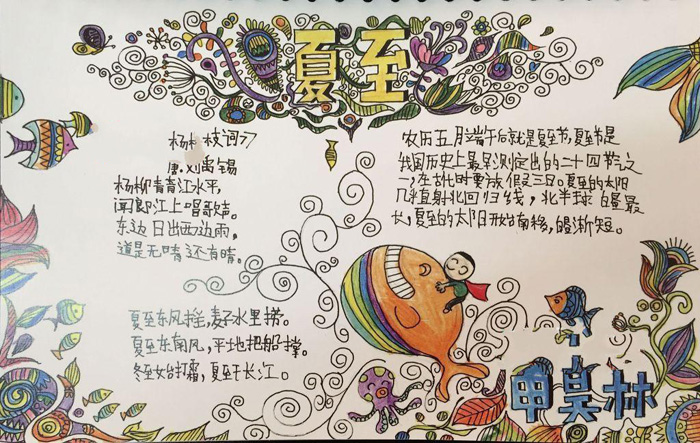 夏至
杨柳枝词
唐.刘禹锡
杨柳青青江水平，
闻郎江上唱歌声。
东边日出西边雨，
道是无晴还有晴。
夏至东风摇，麦子水里捞。
夏至东南风，平地把船撑。
冬至始打霜，夏至干长江。
农历五月端午后就是夏至节，夏至节是
我国历史上最早测定出的二十四节气之
一，在古时要放假三日。夏至的太阳
几乎直射北回归线，北半球白昼最
长，夏至的太阳开始南移，昼渐短。
甲昊林